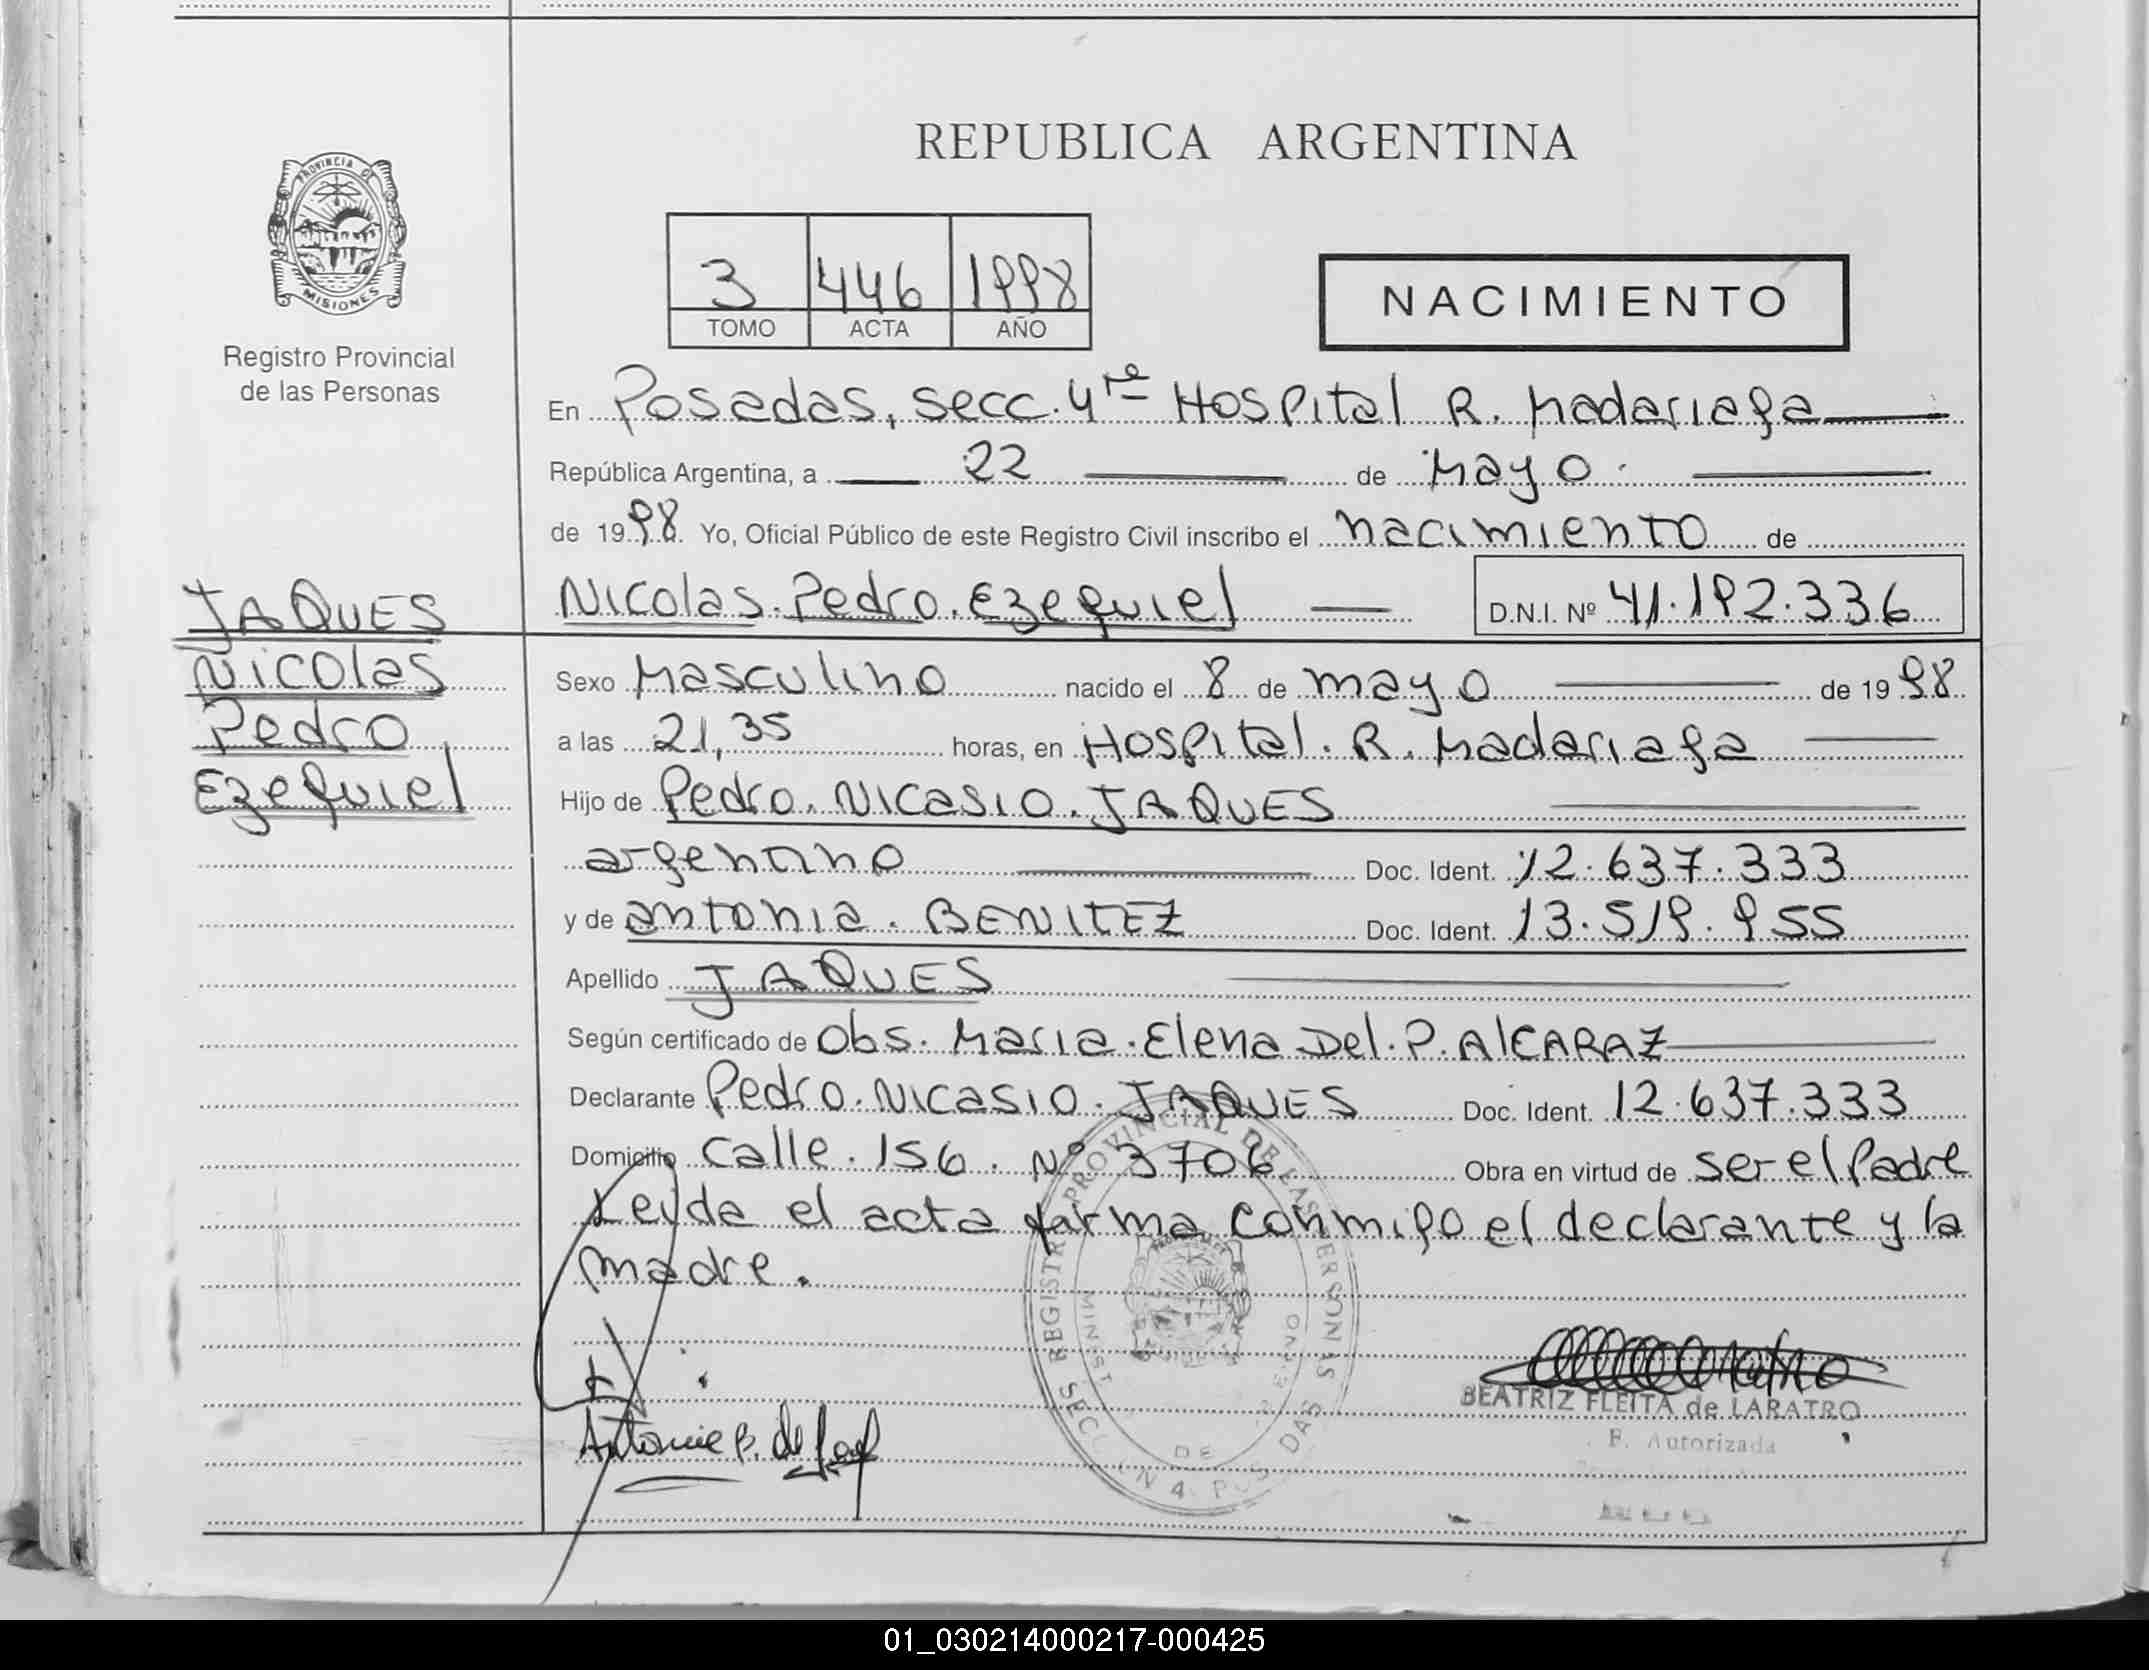 REPUBLICA ARGENTINA
PROVINCIA DE
MISIONES
Registro Provincial
de las Personas
3 446 1998
TOMO ACTA AÑO
NACIMIENTO
En Posadas, secc. 4ta Hospital R. Madariaga
República Argentina, a 22 de Mayo
de 1998 Yo, Oficial Público de este Registro Civil inscribo el nacimiento de
Nicolas Pedro Ezequiel D.N.I. Nº 41.192.336
JAQUES
Nicolas
Pedro
Ezequiel
Sexo Masculino nacido el 8 de mayo de 1998
a las 21,35 horas, en Hospital R. Madariaga
Hijo de Pedro Nicasio JAQUES
argentino Doc. Ident. 12.637.333
y de antonia BENITEZ Doc. Ident. 13.519.955
Apellido JAQUES
Según certificado de Obs. Maria Elena Del P. AlCARAZ
Declarante Pedro Nicasio JAQUES Doc. Ident. 12.637.333
Domicilio Calle 156 Nº 3706 Obra en virtud de ser el Padre
Leida el acta firma conmigo el declarante y la
madre.
REGISTRO PROVINCIAL DE LAS PERSONAS
BEATRIZ FLEITA de LARATRO
F. Autorizada
Antonia B. de
01_030214000217-000425